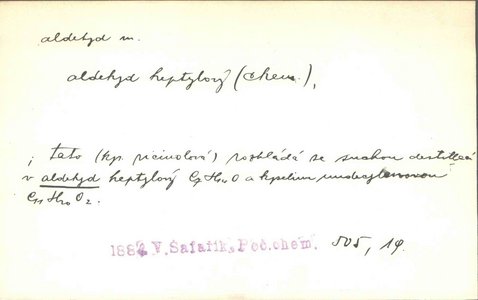 aldehyd m.
aldehyd heptylový (chem.),
; tato (kys. ricinolová) rozkládá se suchou destillací
v aldehyd heptylový C₇H₁₄O a kyselinu undecylenovou
C₁₁H₂₀O₂.
1882 V.Šafařík, Poč.chem. 505, 19.